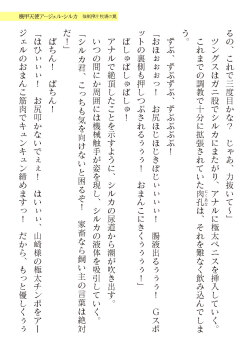 機甲天使アージェル・シルカ
るの、これで三度目かな？　じゃあ、力抜いて～」
ツングスはガニ股でシルカにまたがり、アナルに極太ペニスを挿入していく。
これまでの調教で十分に拡張されていた肉孔は、それを難なく飲み込んでしま
う。
ずぶ、ずぶずぶ、ずぶぶぶぶ！
「おほぉぉっ！　お尻ほじほじきぼぢいぃぃぃ！　腸液出るぅぅぅ！　Ｇスポ
ットの裏側も押しつぶされてるぅぅ！　おまんこにきくぅぅぅ！」
ぱしゅぱしゅぱしゅぱしゅ！
アナルで絶頂したことを示すように、シルカの尿道から潮が吹き出す。
いつの間にか周囲には機械触手が姿を現し、シルカの液体を吸引していく。
「シルカ君、こっちも気を向けないと困るぞ！　家畜なら飼い主の高揚は絶対
だ！」
ぱちん！　ぱちん！
「はいぃぃ！　お尻叩かないでぇぇ！　はいぃぃ、山崎様の極太チンポをアー
ジェルのおまんこ筋肉でキュンキュン締めますっ！　だから、もっと優しくぅぅ